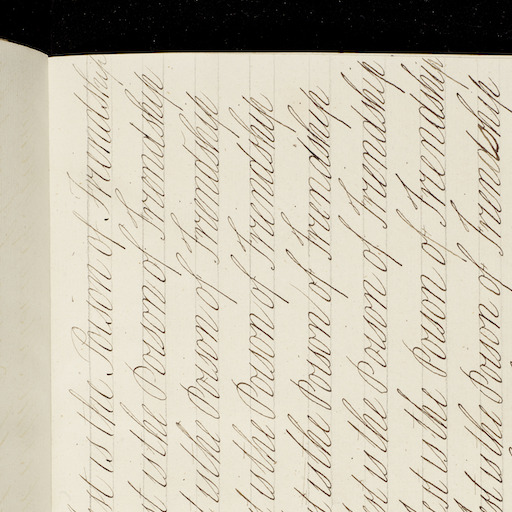 est is the Poison of Friendship
st is the Poison of Friendship
t is the Poison of Friendship
is the Poison of Friendship
st is the Poison of Friendship
est is the Poison of Friendship
est is the Poison of Friendship
est is the Poison of Friendship